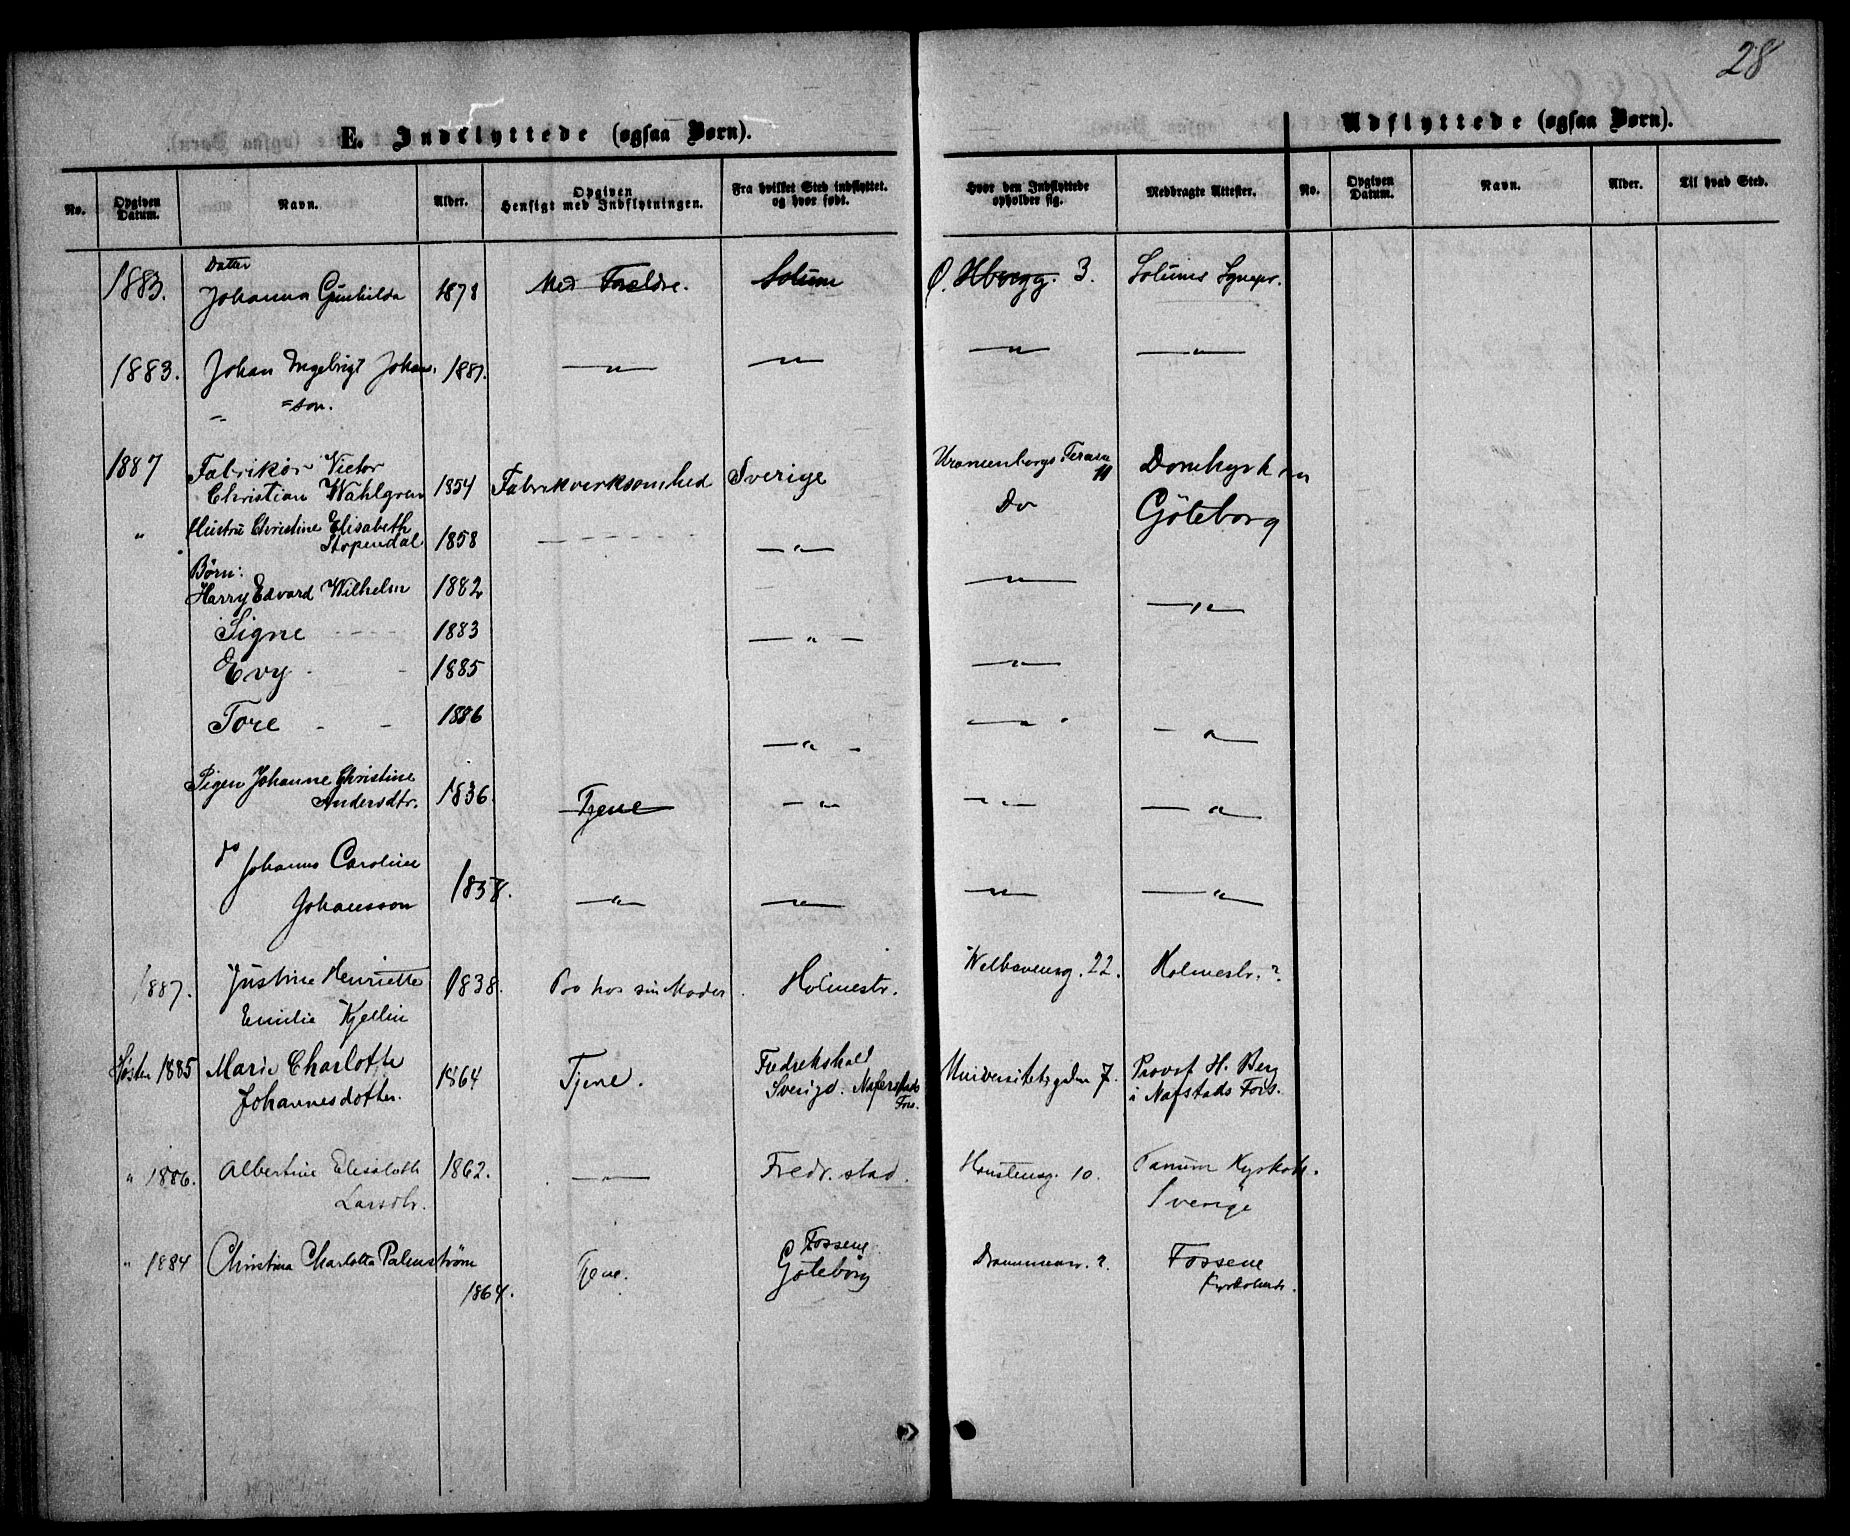 28
E. Indflyttede (ogsaa Børn).
Udflyttede (ogsaa Børn).
No.
Opgiven Datum.
Navn.
Alder.
Opgiven Hensigt med Indflytningen.
Fra hvilket Sted indflyttet. og hvor født.
Hvor den Indflyttede opholder sig.
Medbragte Attester.
No.
Opgiven Datum.
Navn.
Alder.
Til hvad Sted.
Datter
1883. Johanna Gunhilda 1878 Med Forældre. Solum Ø. 3. Solums Sgnepr.
1883. Johan Ingebrigt Johans. 1881. — " — — " — — " — — " —
" =son.
1887 Fabrikør Victor Uranienborgs Terasse 11 Domkyrkan
Christian Wahlgren 1854 Fabrikverksomhed Sverige Do Göteborg
" Hustru Christine Elisabeth
Stopendal 1858 — " —
Børn:
Harry Edvard Wilhelm 1882 — " — — " —
Signe 1883 — " —
Evy 1885 — " —
Tore 1886 — " — — " — — " —
Pigen Johanne Christine
Andersdtr. 1836. Tjene — " — — " — — " —
do Johanna Caroline
Johansson 1858. — " — — " — — " — — " —
1887. Justine Henriette 1838. Bo hos sin Moder. Holmestr. Welhavensg. 22. Holmestr. ?
Emilie Kjellin
Høsten 1885 Marie Charlotte 1864 Tjene. Fredrikshald Universitetsgaden 7. Provst H. Berg
Johannesdotter. Sverige. Fors. i Nafstads Fors.
" 1886. Albertine 1862. — " — Fredr.stad. 10. Tanum Kyrkoh.
Larsdtr. Sverige
" 1884 Christina Charlotta Palmstrøm Tjene. Fossene Drammensv. ? Fossene
1864. Göteborg